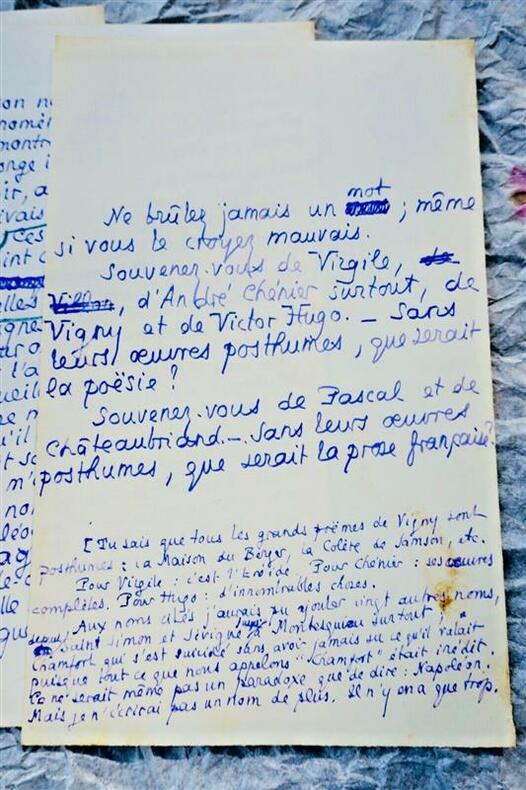 mot
Ne brûlez jamais un ; même
si vous le croyez mauvais.
Souvenez-vous de Virgile, de
Villon, d'André Chénier surtout, de
Vigny et de Victor Hugo. — Sans
leurs œuvres posthumes, que serait
la poësie ?
Souvenez-vous de Pascal et de
Châteaubriand — Sans leurs œuvres
posthumes, que serait la prose française ?
[Tu sais que tous les grands poèmes de Vigny sont
posthumes : la Maison du Berger, la Colère de Samson, etc.
Pour Virgile : c'est l'Enéide. Pour Chénier : ses œuvres
complètes. Pour Hugo : d'innombrables choses.
Aux noms cités j'aurais pu ajouter vingt autres noms,
depuis Saint Simon et Sévigné jusqu'à Montesquieu surtout !
Chamfort qui s'est suicidé sans avoir jamais su ce qu'il valait
puisque tout ce que nous appelons "Chamfort" était inédit.
Ce ne serait même pas un paradoxe que de dire : Napoléon.
Mais je n'écrirai pas un nom de plus. Il n'y en a que trop.